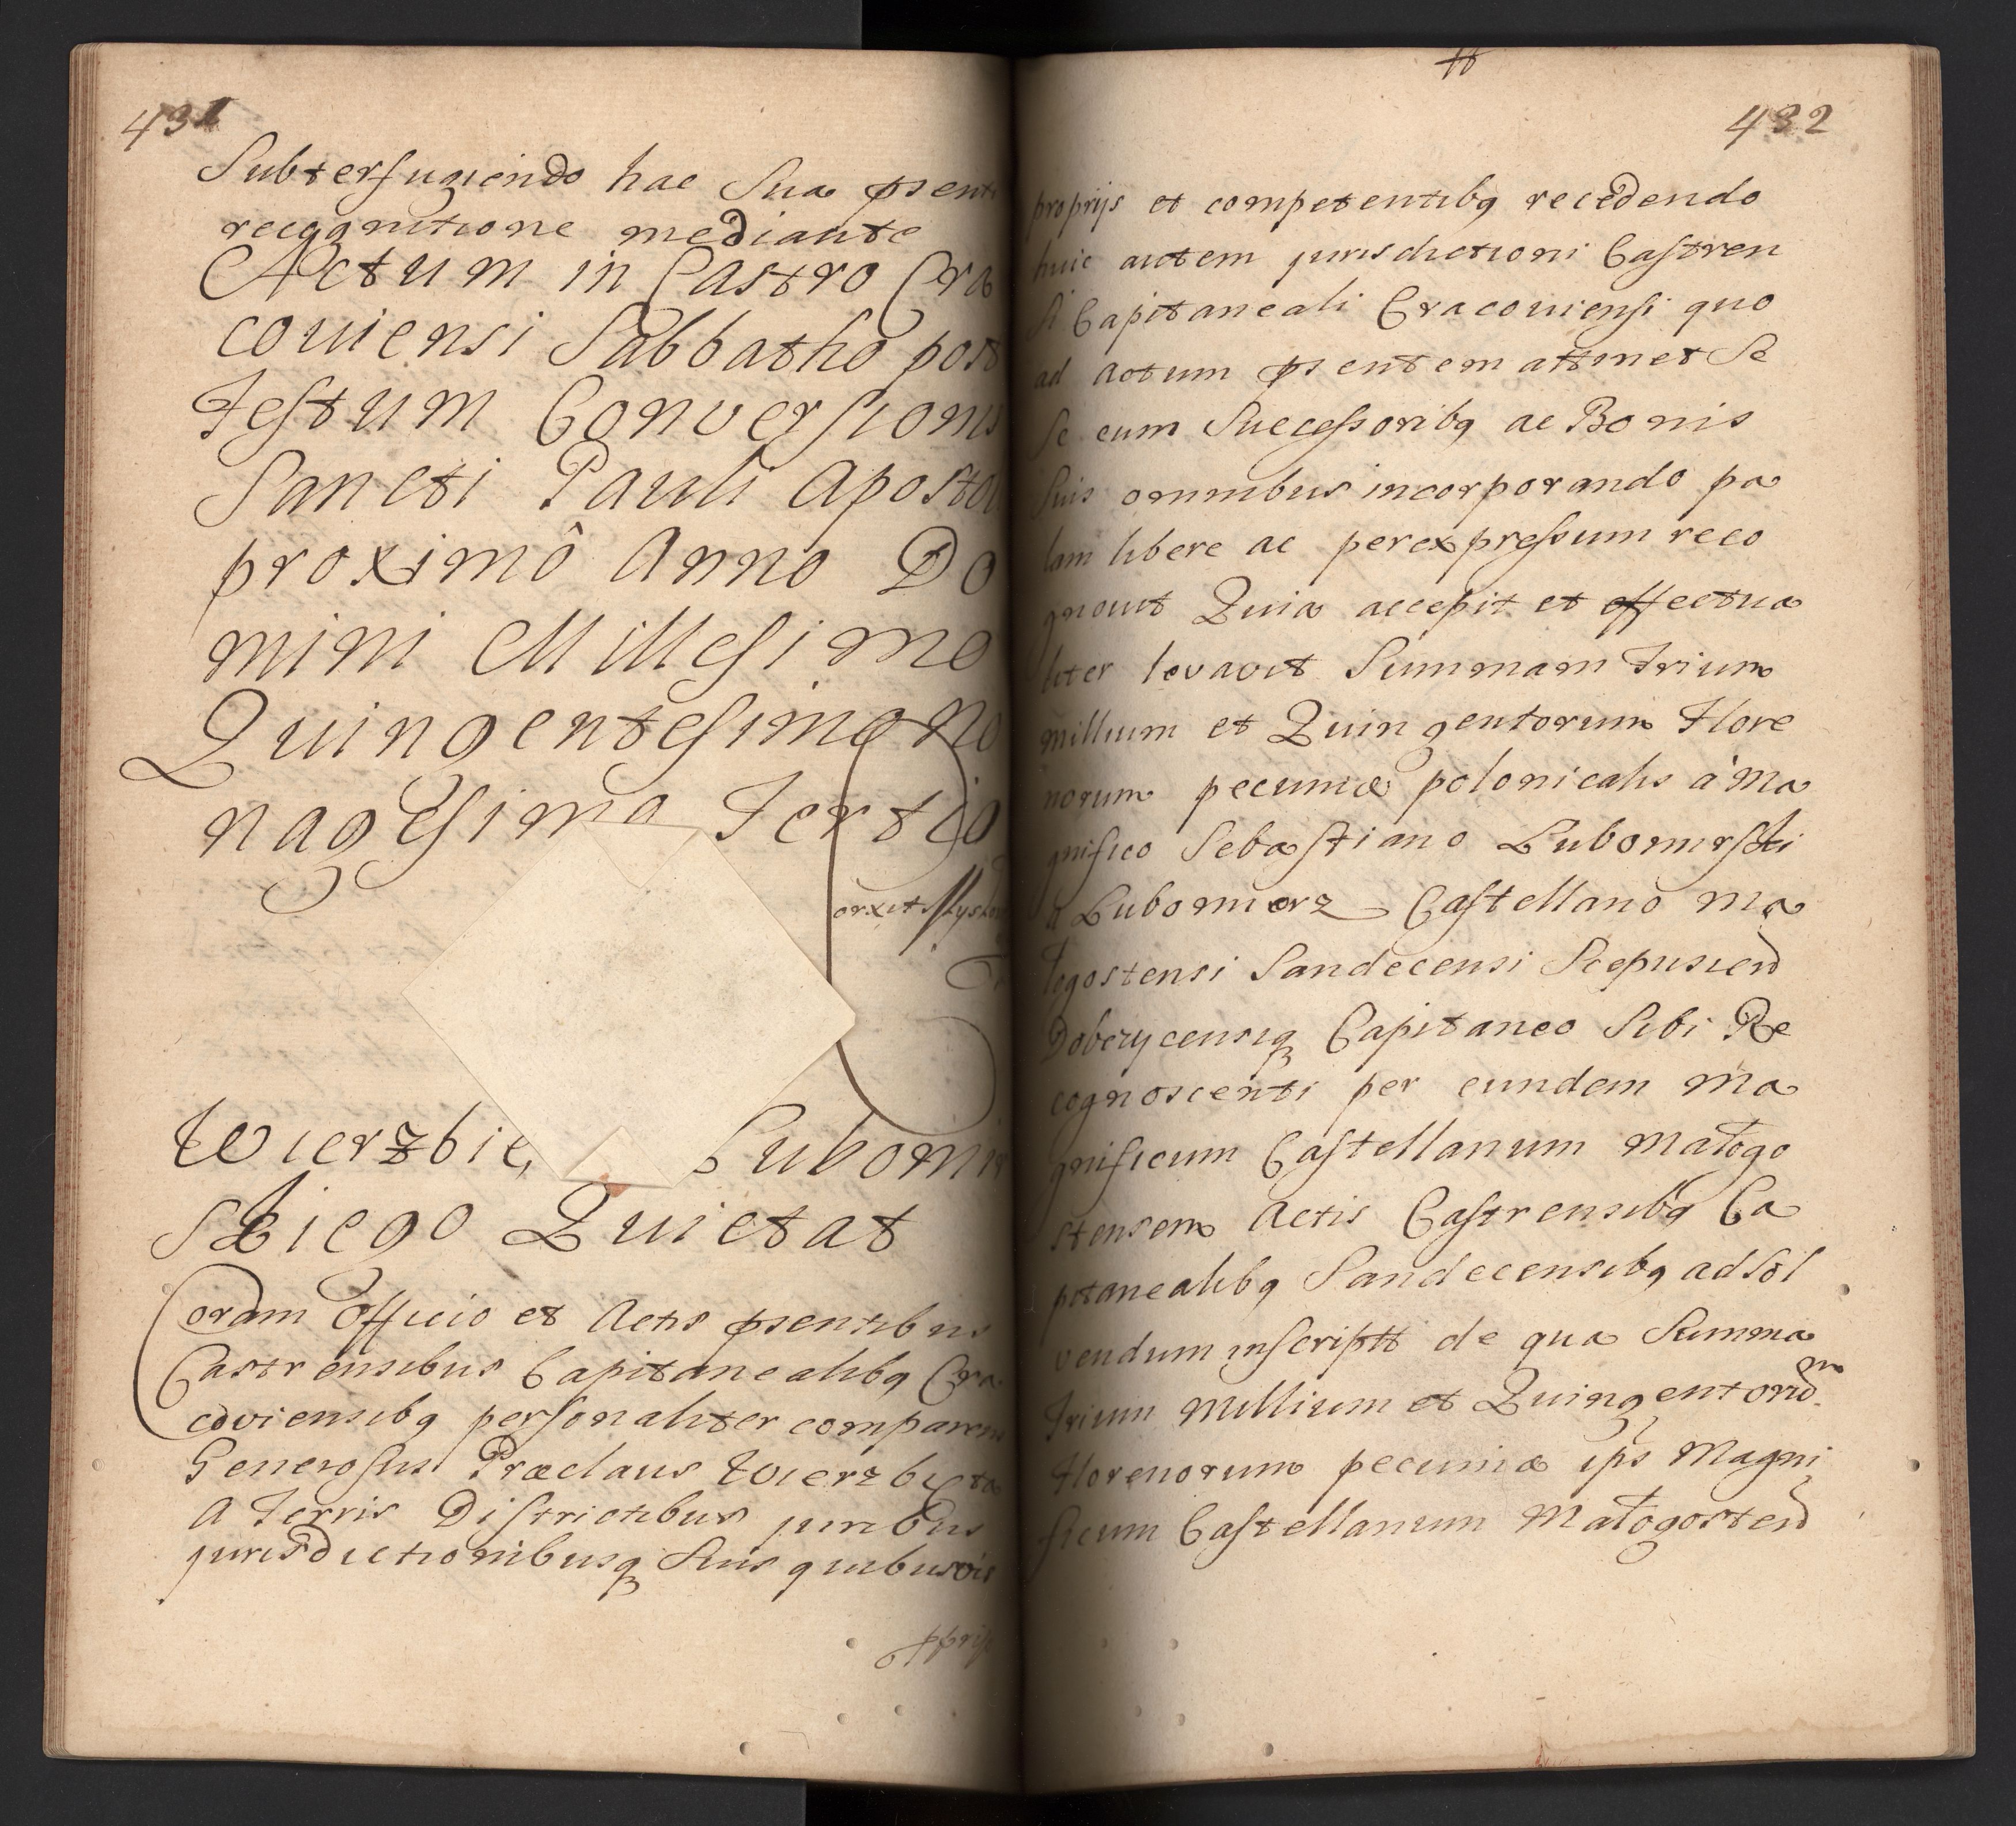 431
Subterfugiendo hac Sua psenti
recognitione mediante
Actum in Castro Cra
coviensi Sabbatho post
Festum Conversionis
Sancti Pauli Aposto
proximô Anno Do
mini Millesimo
Quingentesimo No
nagesimo Tertio
orxit
Wierzbię Lubomir
skiego Quietat
Coram Officio et Actis psentibus
Castrensibus Capitanealibq Cra
coviensibq personaliter comparens
Generosus Præclaus Wierzbięta
A Terris Districtibus juribus
jurisdictionibusq Suis quibusvis
ppriis
432
proprijs et competentibq recedendo
huic autem jurisdictioni Castren
si Capitaneali Cracoviensi quo
ad Actum psentem attinet Se
Se cum Successoribq ac Bonis
Suis omnibus incorporando pa
lam libere ac per expressum reco
gnovit Quia accepit et effectua
liter levavit Summam Trium
millium et Quingentorum Flore
norum pecuniæ polonicalis à Ma
gnifico Sebastiano Lubomirski
a Lubomierz Castellano Ma
łogostensi Sandecensi Scepusien
Dobczycensiq Capitaneo Sibi Re
cognoscenti per eundem Ma
gnificum Castellanum Małogo
stensem Actis Castrensibq Ca
pitanealibq Sandecensibq ad Sol
vendum inscriptt de qua Summa
Trium Millium et Quingentorum
Florenorum pecuniæ ips Magni
ficum Castellanum Małogosten